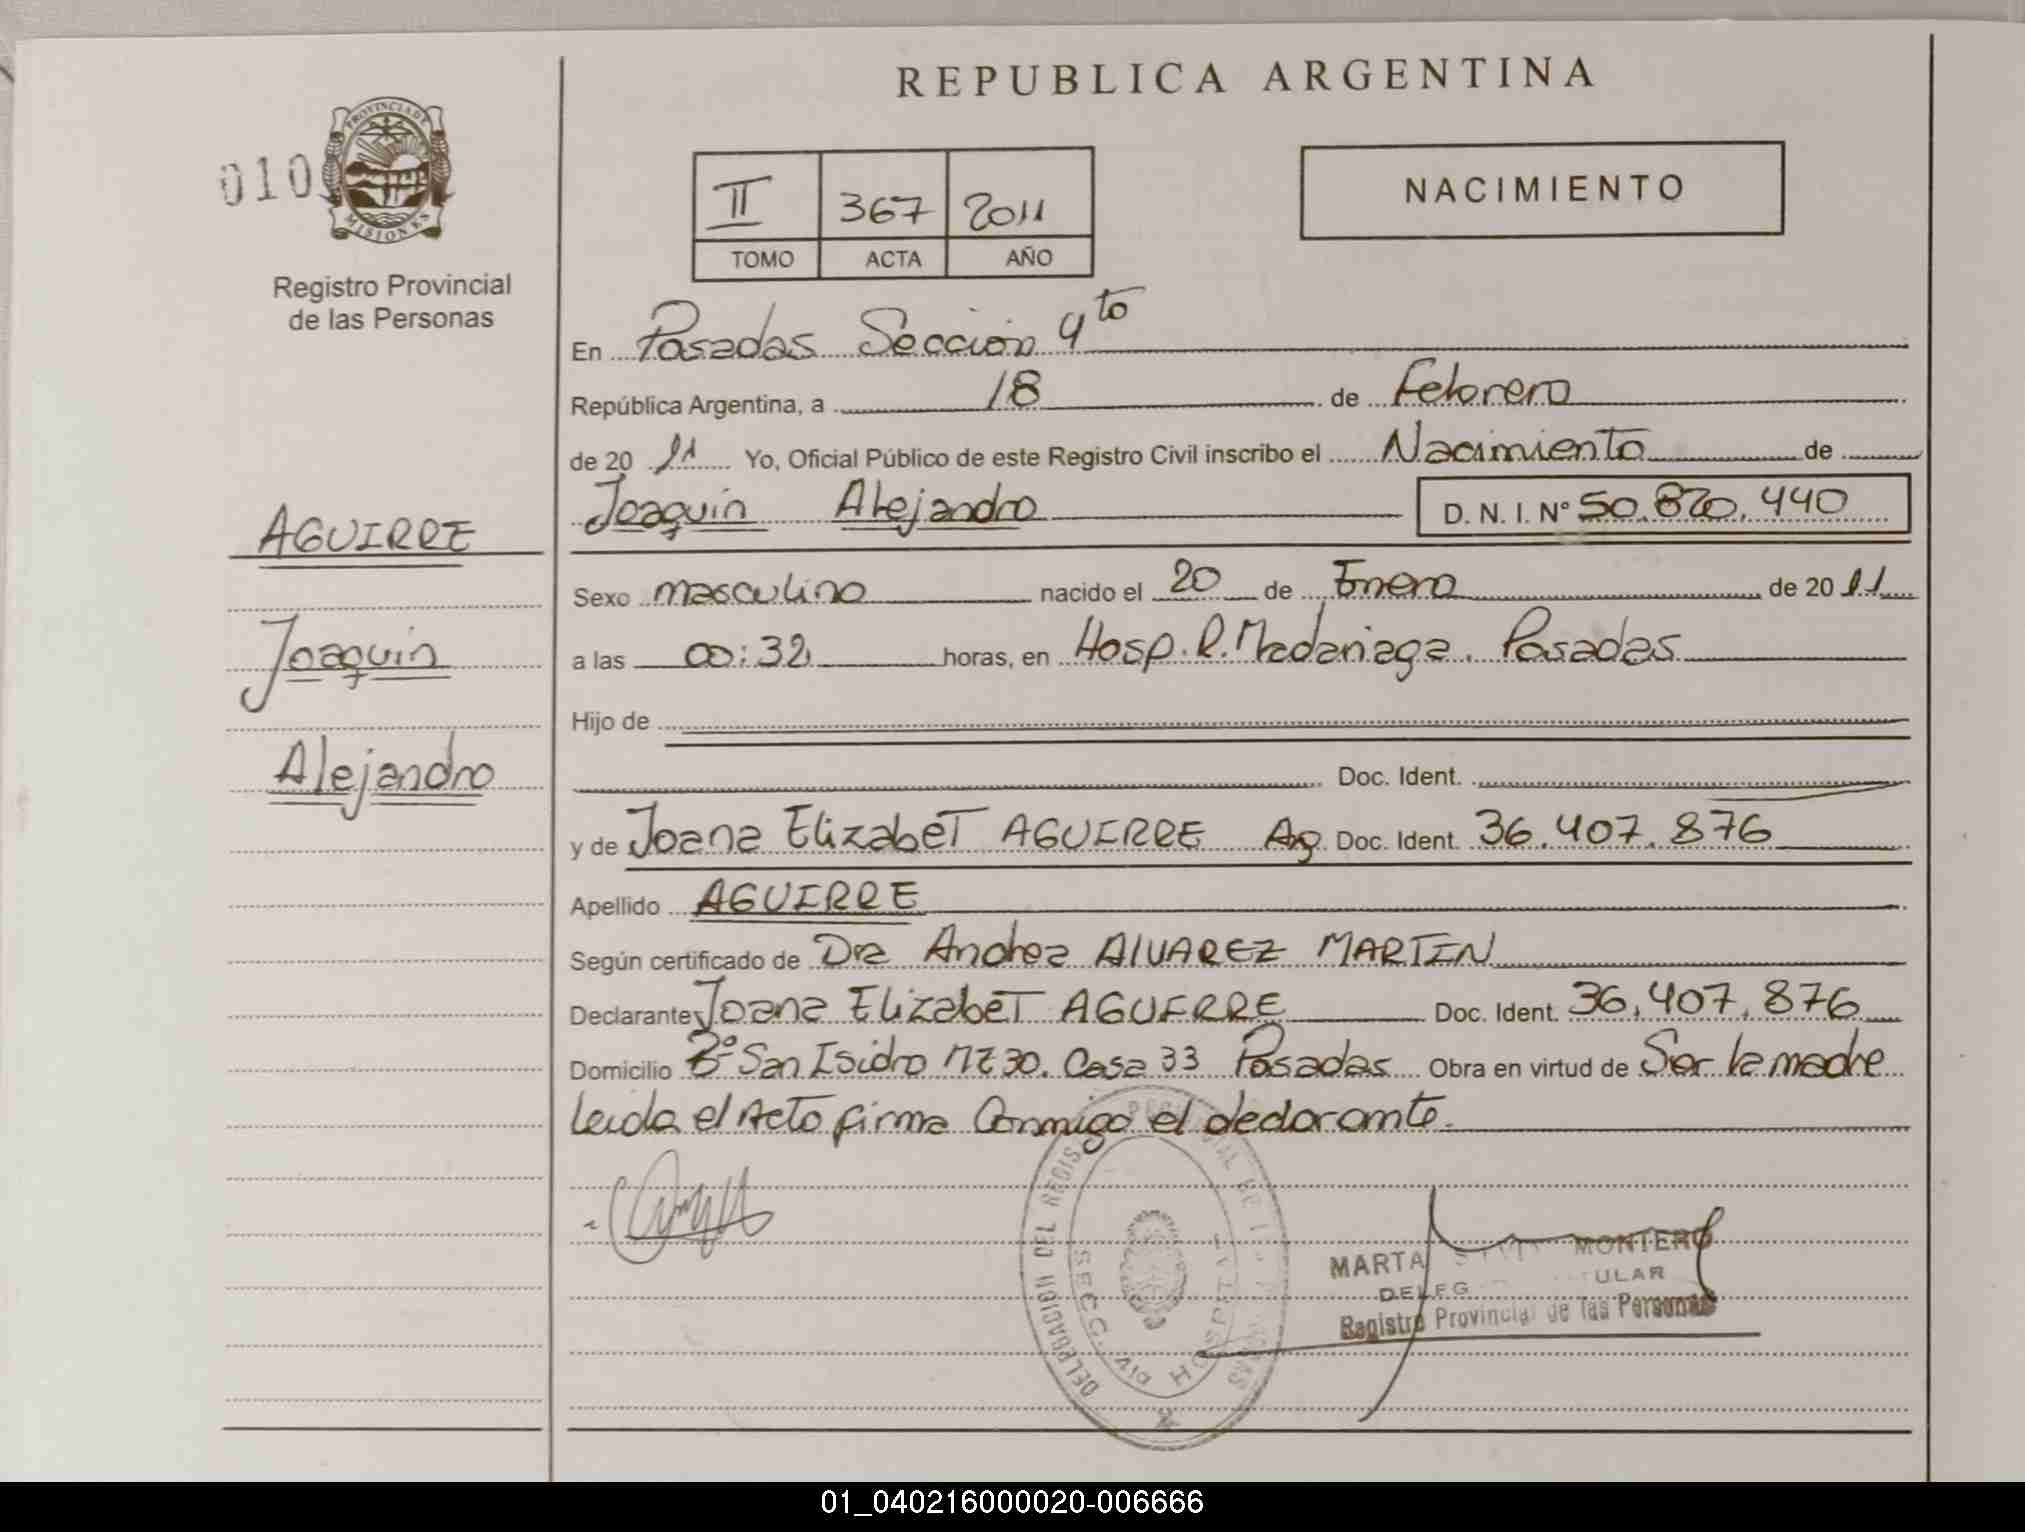 REPUBLICA ARGENTINA
010
PROVINCIA DE
MISIONES
Registro Provincial
de las Personas
II 367 2011
TOMO ACTA AÑO
NACIMIENTO
En Posadas Sección 4to
República Argentina, a 18 de Febrero
de 20 11 Yo, Oficial Público de este Registro Civil inscribo el Nacimiento de
Joaquin Alejandro D. N. I. N° 50.820.440
AGUIRRE
Joaquin
Alejandro
Sexo masculino nacido el 20 de Enero de 20 11
a las 00:32 horas, en Hosp. R. Madariaga. Posadas
Hijo de
Doc. Ident.
y de Joana Elizabet AGUIRRE Arg. Doc. Ident. 36.407.876
Apellido AGUIRRE
Según certificado de Dra Andrea ALVAREZ MARTIN
Declarante Joana Elizabet AGUIRRE Doc. Ident. 36.407.876
Domicilio B° San Isidro MZ 30. Casa 33 Posadas Obra en virtud de Ser la madre
leida el Acto firma Conmigo el declarante.
DELEGACION DEL REGISTRO
SECC. 4ta HOSPITAL
MARTA MONTERO
Registro Provincial de las Personas
01_040216000020-006666